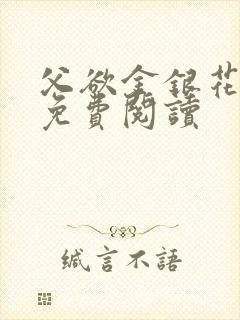 父欲金銀花
免費閱讀
緘言不語